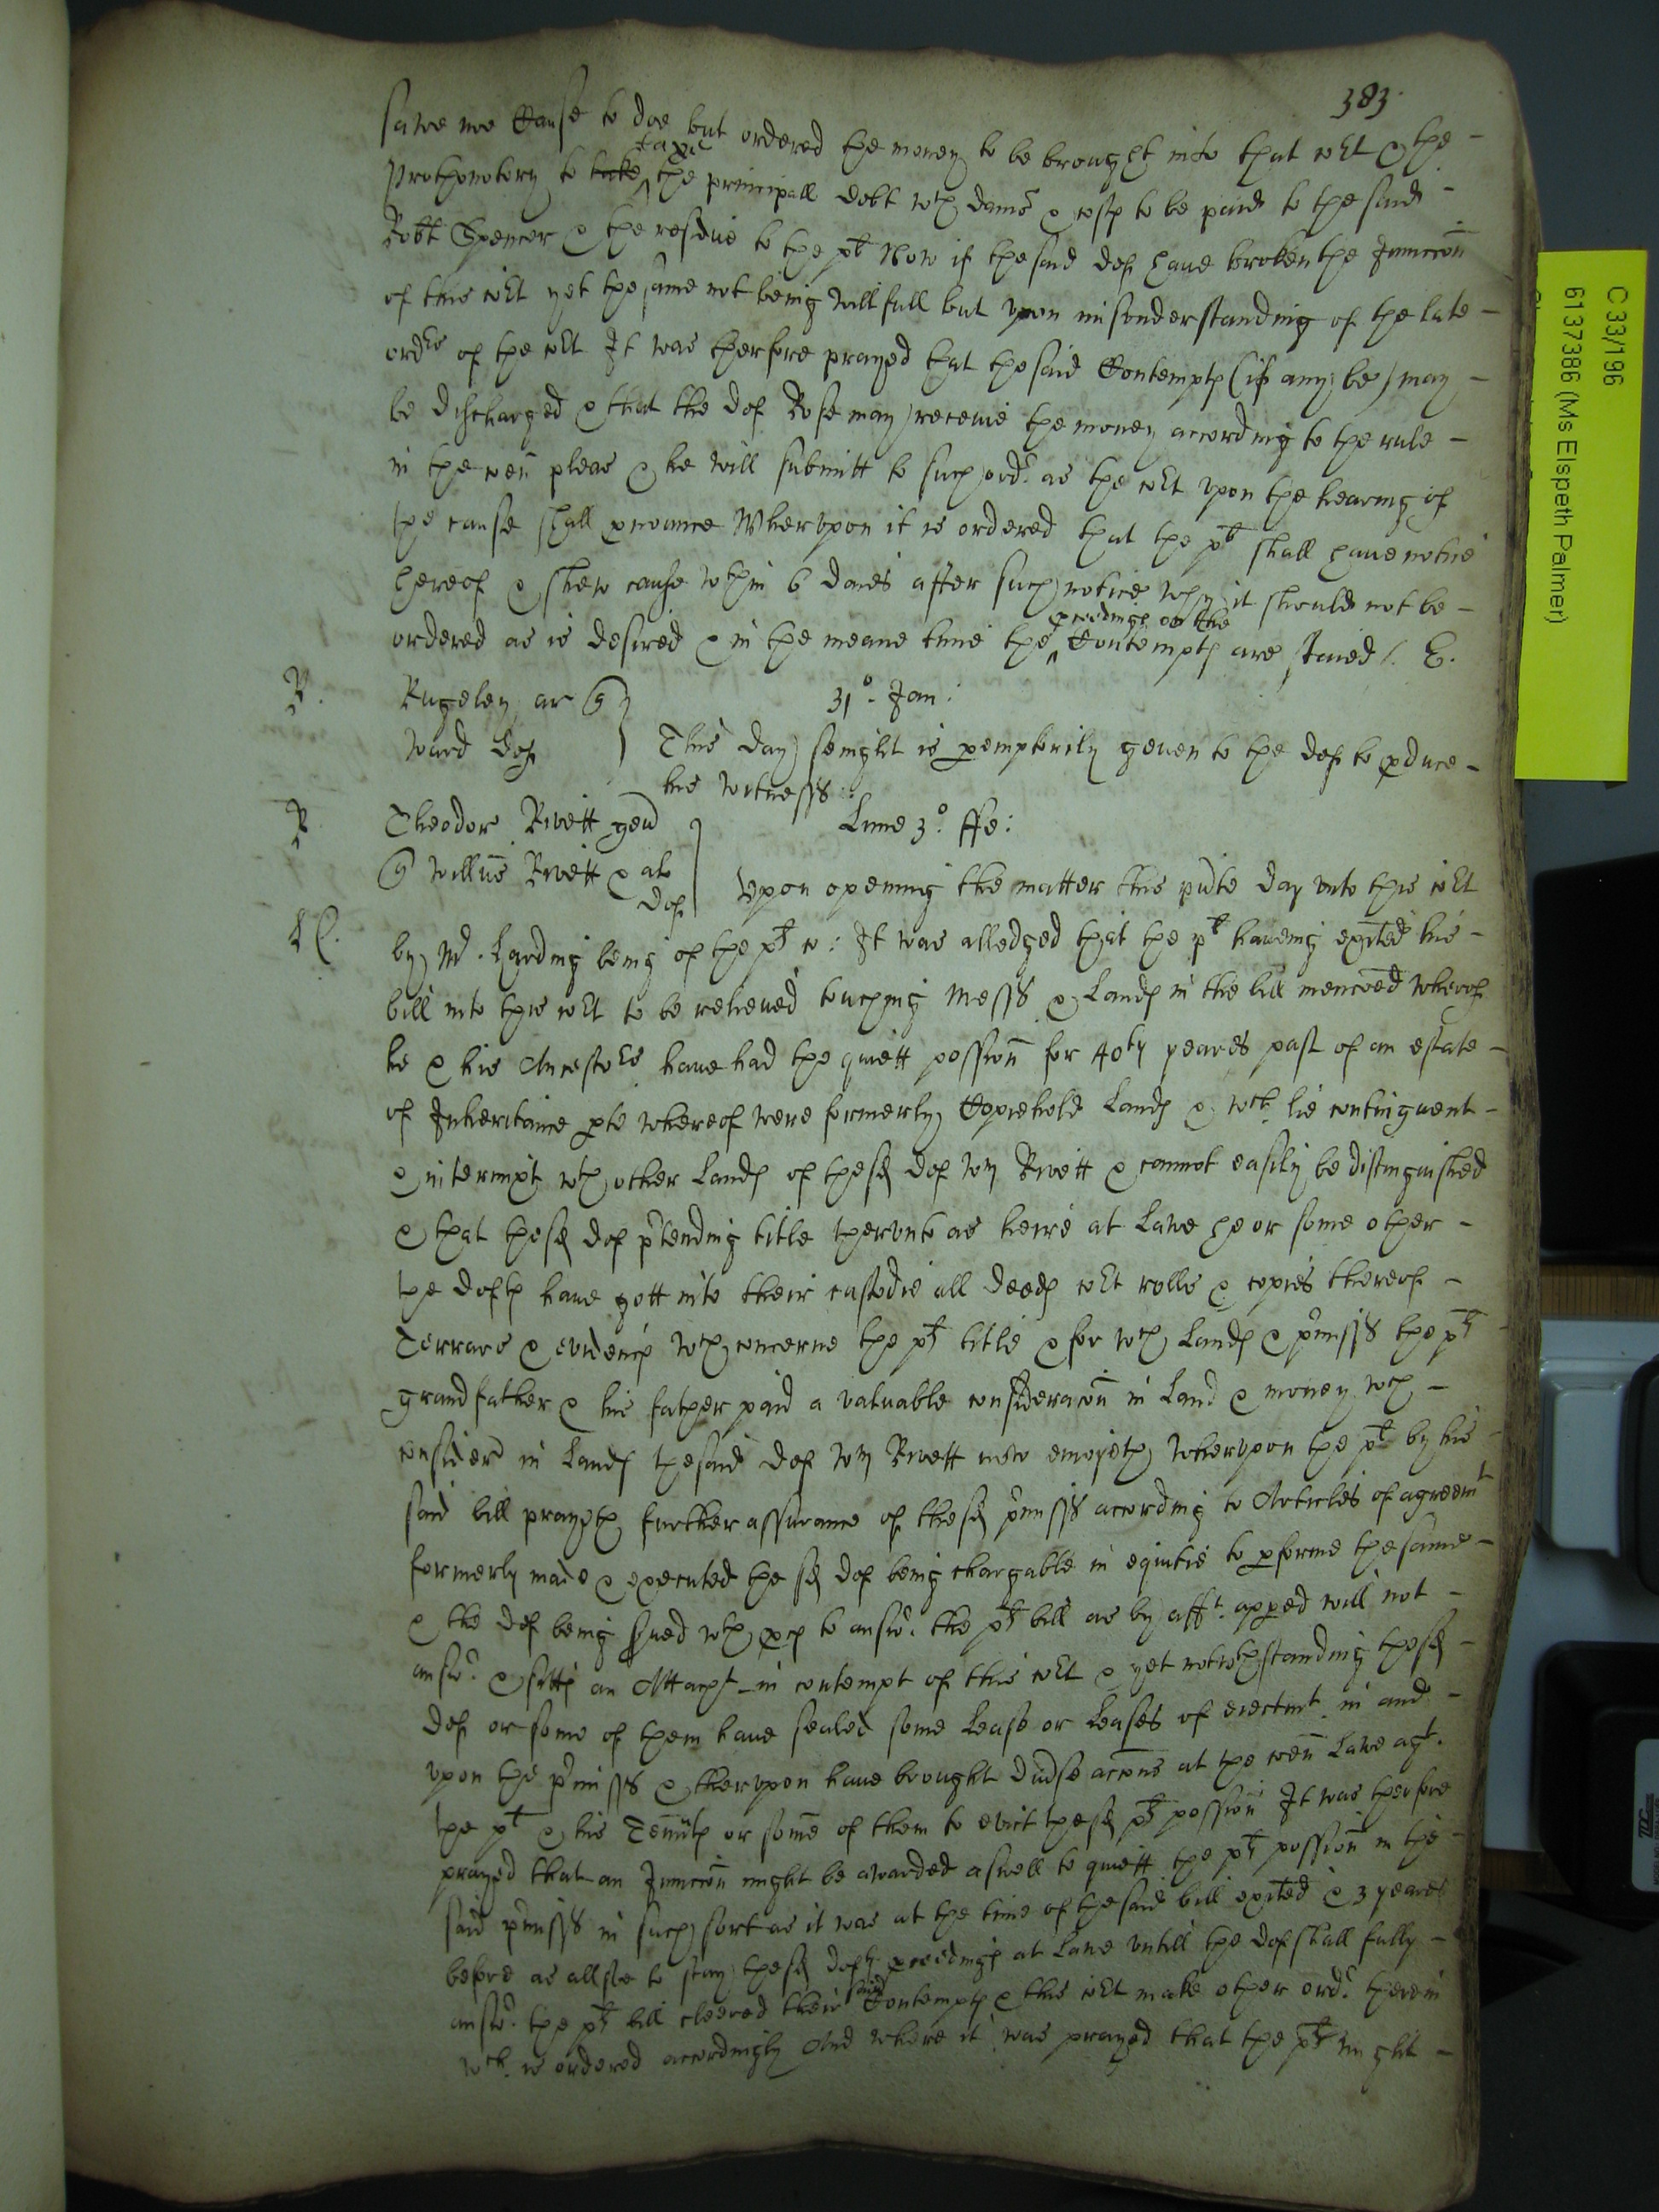 383.
sawe noe Cause to doe but ordered the money to be brought into that cort & the -
Prothonotory to take taxe the principall debt wth dams & costs to be paid to the said -
Robt Spencer & the residue to the plt Now if the said def have broken the Iniuccon
of this cort yet the same not being willfull but vpon misonderstanding of the late -
ordrs of the cort It was therfore prayed that the said Contempts (if any be) may -
be discharged & that the def Rose may receive the money according to the rule -
in the coen pleas & he will submitt to such ordr as the cort vpon the hearing of
the cause shall pnounce Whervpon it is ordered that the plt shall have notice
hereof & shew cause wthin 6 daies after such notice why it should not be -
ordered as is desired & in the meane time the pceedings on the Contempts are staied /. E.
R. Rugeley ar q
Ward def
31o. Jan:
This day senight is pemptorily geven to the def to pduce -
his witnesses
R Theodor Rivett gen
q Willus Rivett & al
def
Lune 3o. ffe:
Vpon opening the matter this pnte day vnto this cort
by Mr. Harding being of the plts co: It was alledged that the plt haveing exited his -
bill into this cort to be releived touching Messs & Lands in the bill mencoed wherof
he & his Ancestors have had the quiett possion for 40ty yeares past of an estate -
of Inheritaince pte whereof were formerly Copiehold Lands & wch lie contiguent -
& intermixt wth other Lands of the sd def Wm Rivett & cannot easily be distinguished
& that the sd def ptending title thervnto as heire at Lawe he or some other -
the defts have gott into their custodie all deeds cort rolls & copies thereof -
Terrars & evidence wch concerne the plts title & for wch Lands & pmisss the plts
grandfather & his father paid a valuable consideracon in Land & money wch -
consider in Lands the said def Wm Rivett now enioyeth Whervpon the plt by his -
said bill prayeth further assurance of the sd pmisss according to Articles of agreemt
formerly made & executed the sd def being chargable in equitie to pforme the same -
& the def being sued wth pces to answr. the plts bill as by afft. appred will not -
answr. & sitts an Attachmt in contempt of this cort & yet notwthstanding the sd -
def or some of them have sealed some lease or leases of eiectmt. in and -
vpon the pmisss & thervpon have brought divse accons at the coen Lawe agt.
the plt & his Tennts or some of them to evict the sd plts possion It was therfore
prayed that an Iniuccon might be awarded aswell to quiett the plts possion in the -
said pmisss in such sort as it was at the time of the said bill exited & 3 yeares
before as allsoe to stay the sd defts pceedings at Lawe vntill the def shall fully -
answr. the plts bill cleered their said Contempts & this cort make other ordr. therein
wch. is ordered accordingly And where it was prayed that the plt might -
C 33/196
6137386 (Ms Elspeth Palmer)